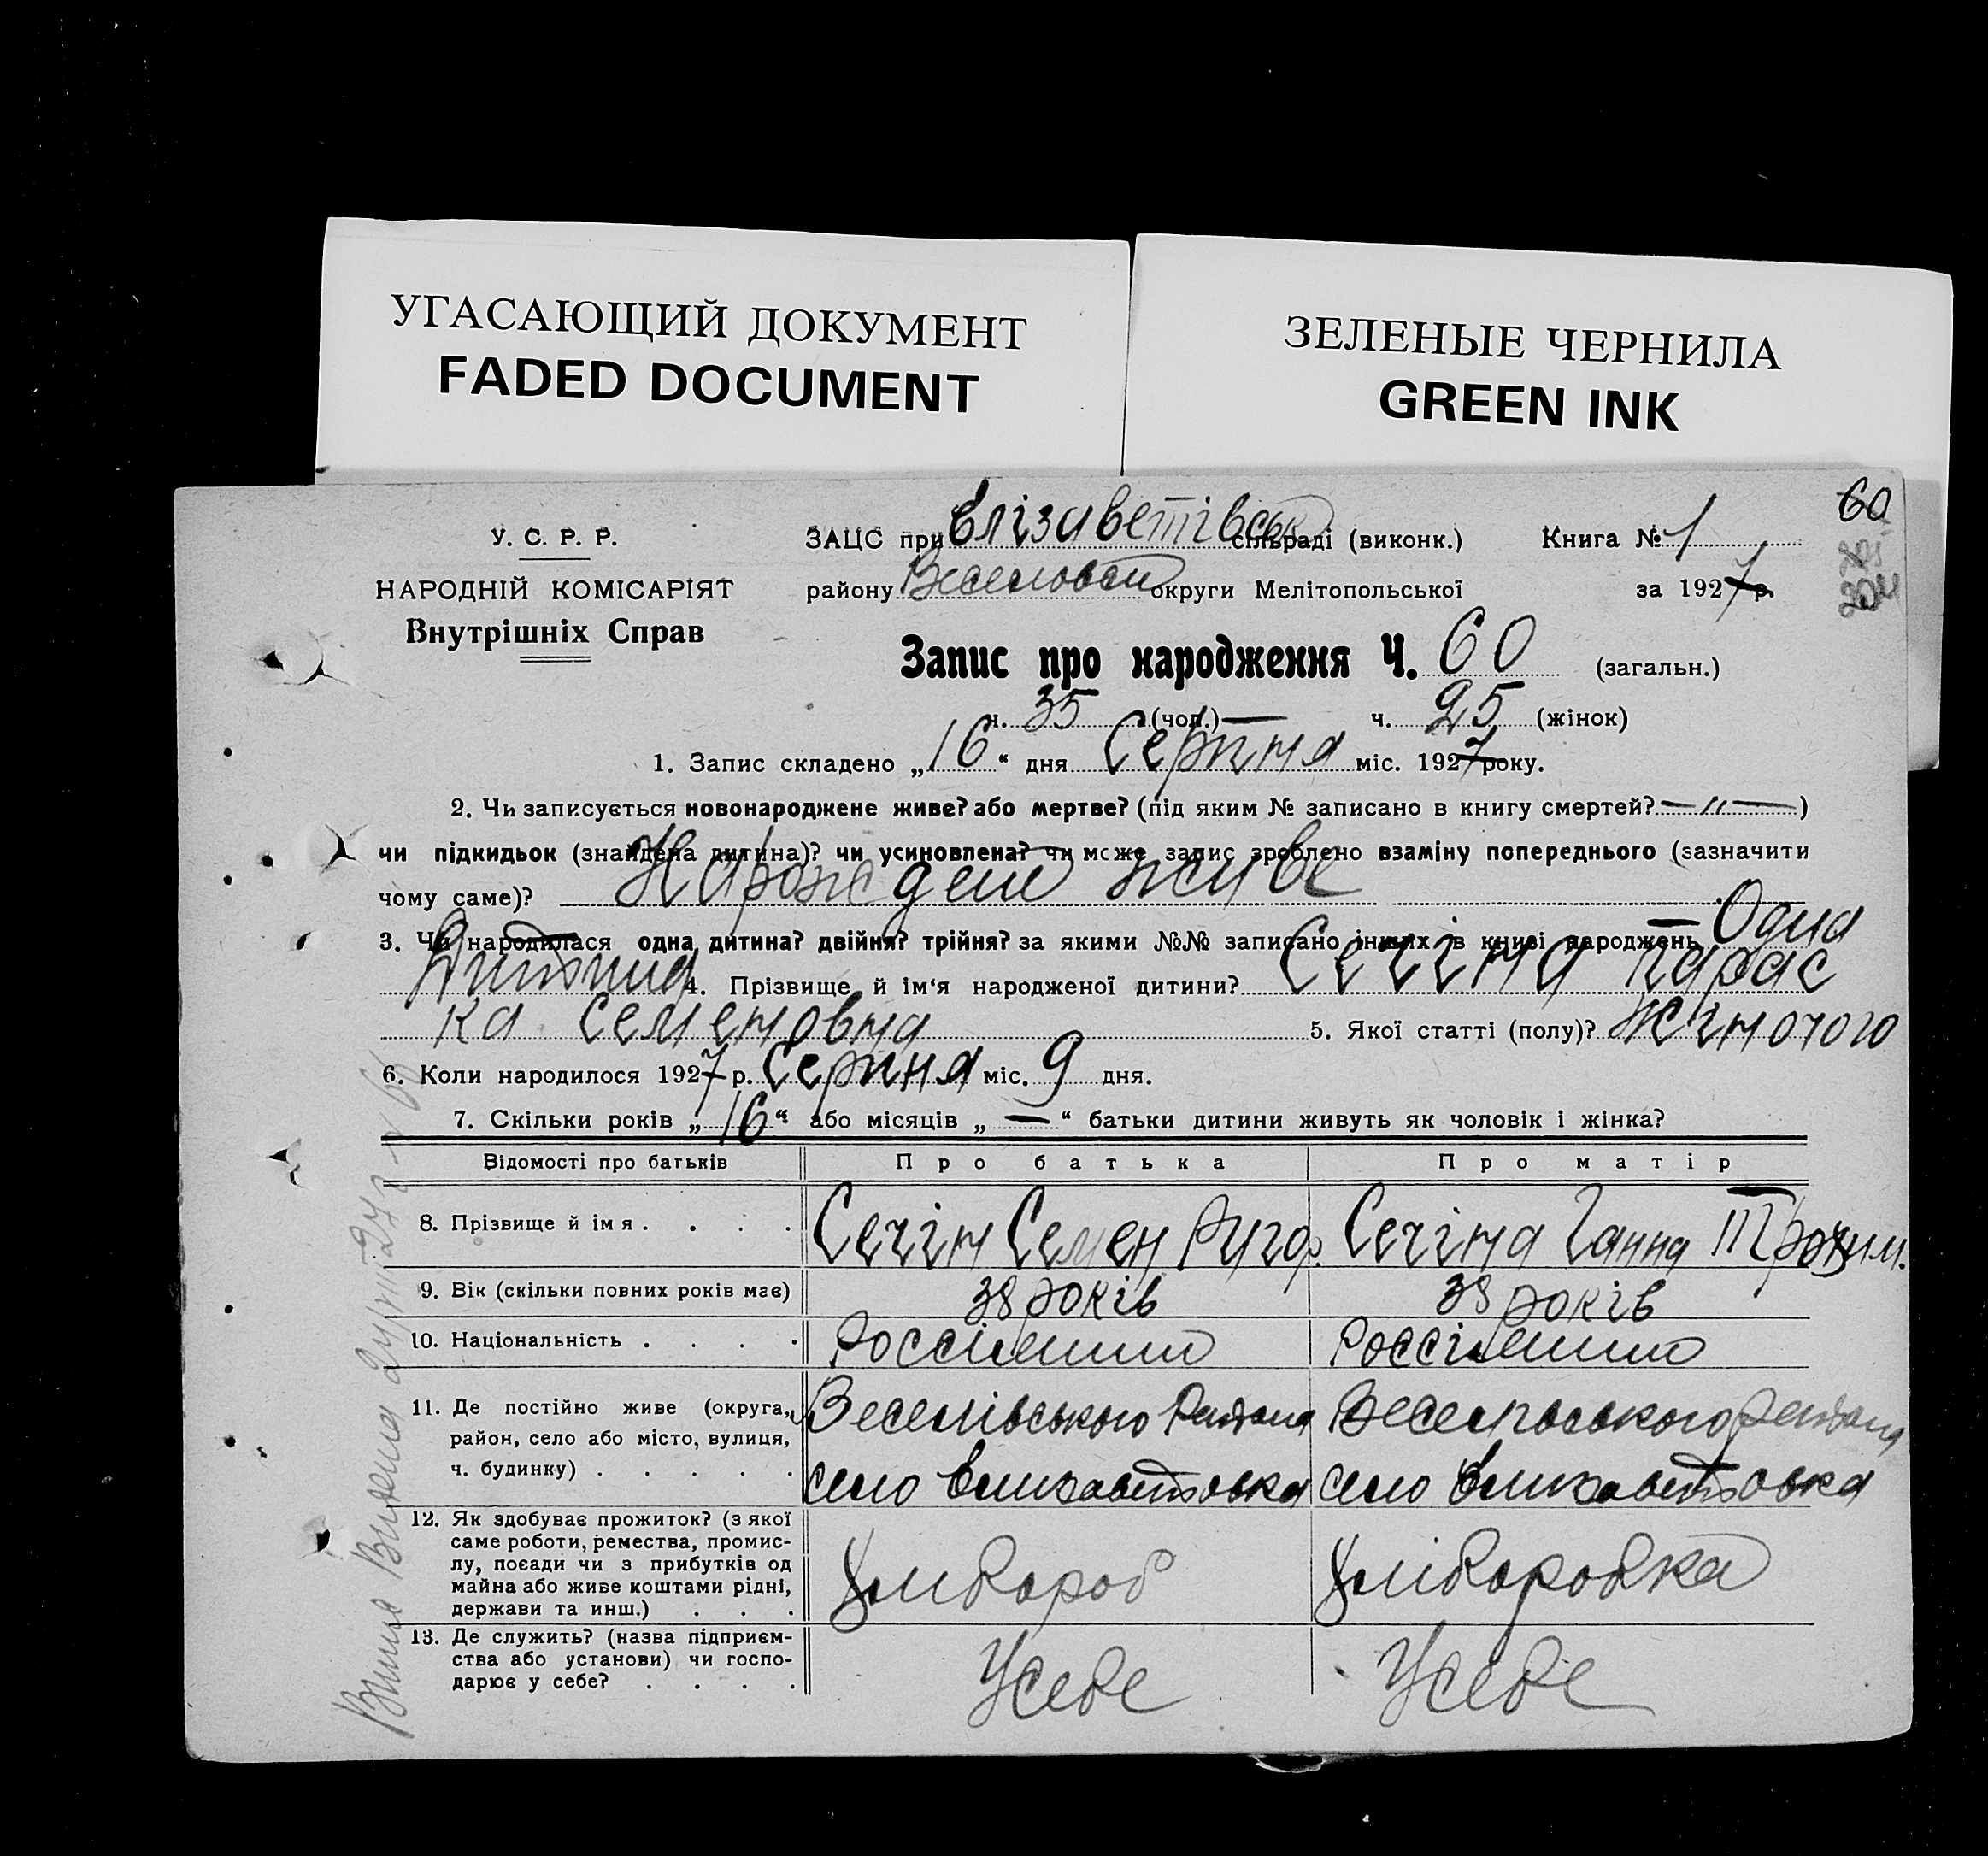 УГАСАЮЩИЙ ДОКУМЕНТ
FADED DOCUMENT
ЗЕЛЕНЫЕ ЧЕРНИЛА
GREEN INK
60
У. С. Р. Р.
НАРОДНІЙ КОМІСАРІЯТ
Внутрішніх Справ
ЗАЦС при Єлізаветівськ сільраді (виконк.) Книга № 1
району округи Мелітопольської за 1927 р.
Запис про народження Ч. 60 (загальн.)
ч. 35 (чол.) — ч. 25 (жінок)
1. Запис складено „16“ дня Серпня міс. 1927 року.
2. Чи записується новонароджене живе? або мертве? (під яким № записано в книгу смертей? — „ —)
чи підкидьок (знайдена дитина)? чи усиновлена? чи може запис зроблено взаміну попереднього (зазначити
чому саме)? Народжене живе
3. Чи народилася одна дитина? двійня? трійня? за якими №№ записано інших в книзі народжень — Одна
Дитина 4. Прізвище й ім‘я народженої дитини? Сечіна Парас
ка Семеновна 5. Якої статті (полу)? Жіночого
6. Коли народилося 1927 р. Серпня міс. 9 дня.
7. Скільки років „16“ або місяців „—“ батьки дитини живуть як чоловік і жінка?
Відомості про батьків Про батька Про матір
8. Прізвище й імя . . . . Сечін Семен Сечіна Ганна
9. Вік (скільки повних років має) 38 років 38 років
10. Національність . . . .
11. Де постійно живе (округа, Веселівського Району Веселівського району
район, село або місто, вулиця,
ч. будинку) . . . . . село Елизаветовка село Елизаветовка
12. Як здобуває прожиток? (з якої
саме роботи, ремества, промис-
лу, посади чи з прибутків од
майна або живе коштами рідні,
держави та инш.) . . .
13. Де служить? (назва підприєм-
ства або установи) чи госпо-
дарює у себе? . . . . У себе У себе